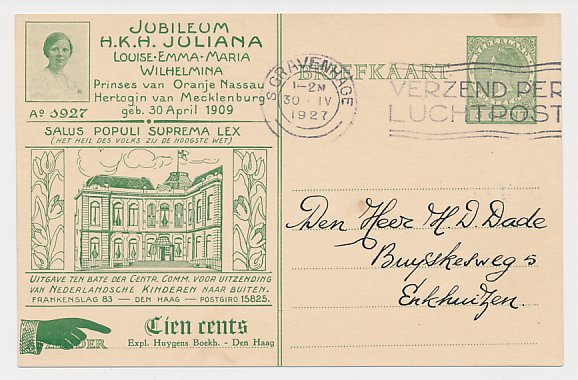 JUBILEUM
H.K.H. JULIANA
LOUISE·EMMA·MARIA
WILHELMINA
Prinses van Oranje Nassau
Hertogin van Mecklenburg
geb. 30 April 1909
Aº 1927
SALUS POPULI SUPREMA LEX
(HET HEIL DES VOLKS ZIJ DE HOOGSTE WET)
UITGAVE TEN BATE DER CENTR. COMM. VOOR UITZENDING
VAN NEDERLANDSCHE KINDEREN NAAR BUITEN.
FRANKENSLAG 83 — DEN HAAG — POSTGIRO 15825.
Tien cents
Expl. Huygens Boekh. - Den Haag
BRIEFKAART
NEDERLAND
'S GRAVENHAGE
1-2N
30 · IV
1927
VERZEND PER
LUCHTPOST
Den Heer H D Dade
Buyskesweg 5
Enkhuizen.